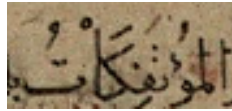 المُؤْتَفِكَاتُ